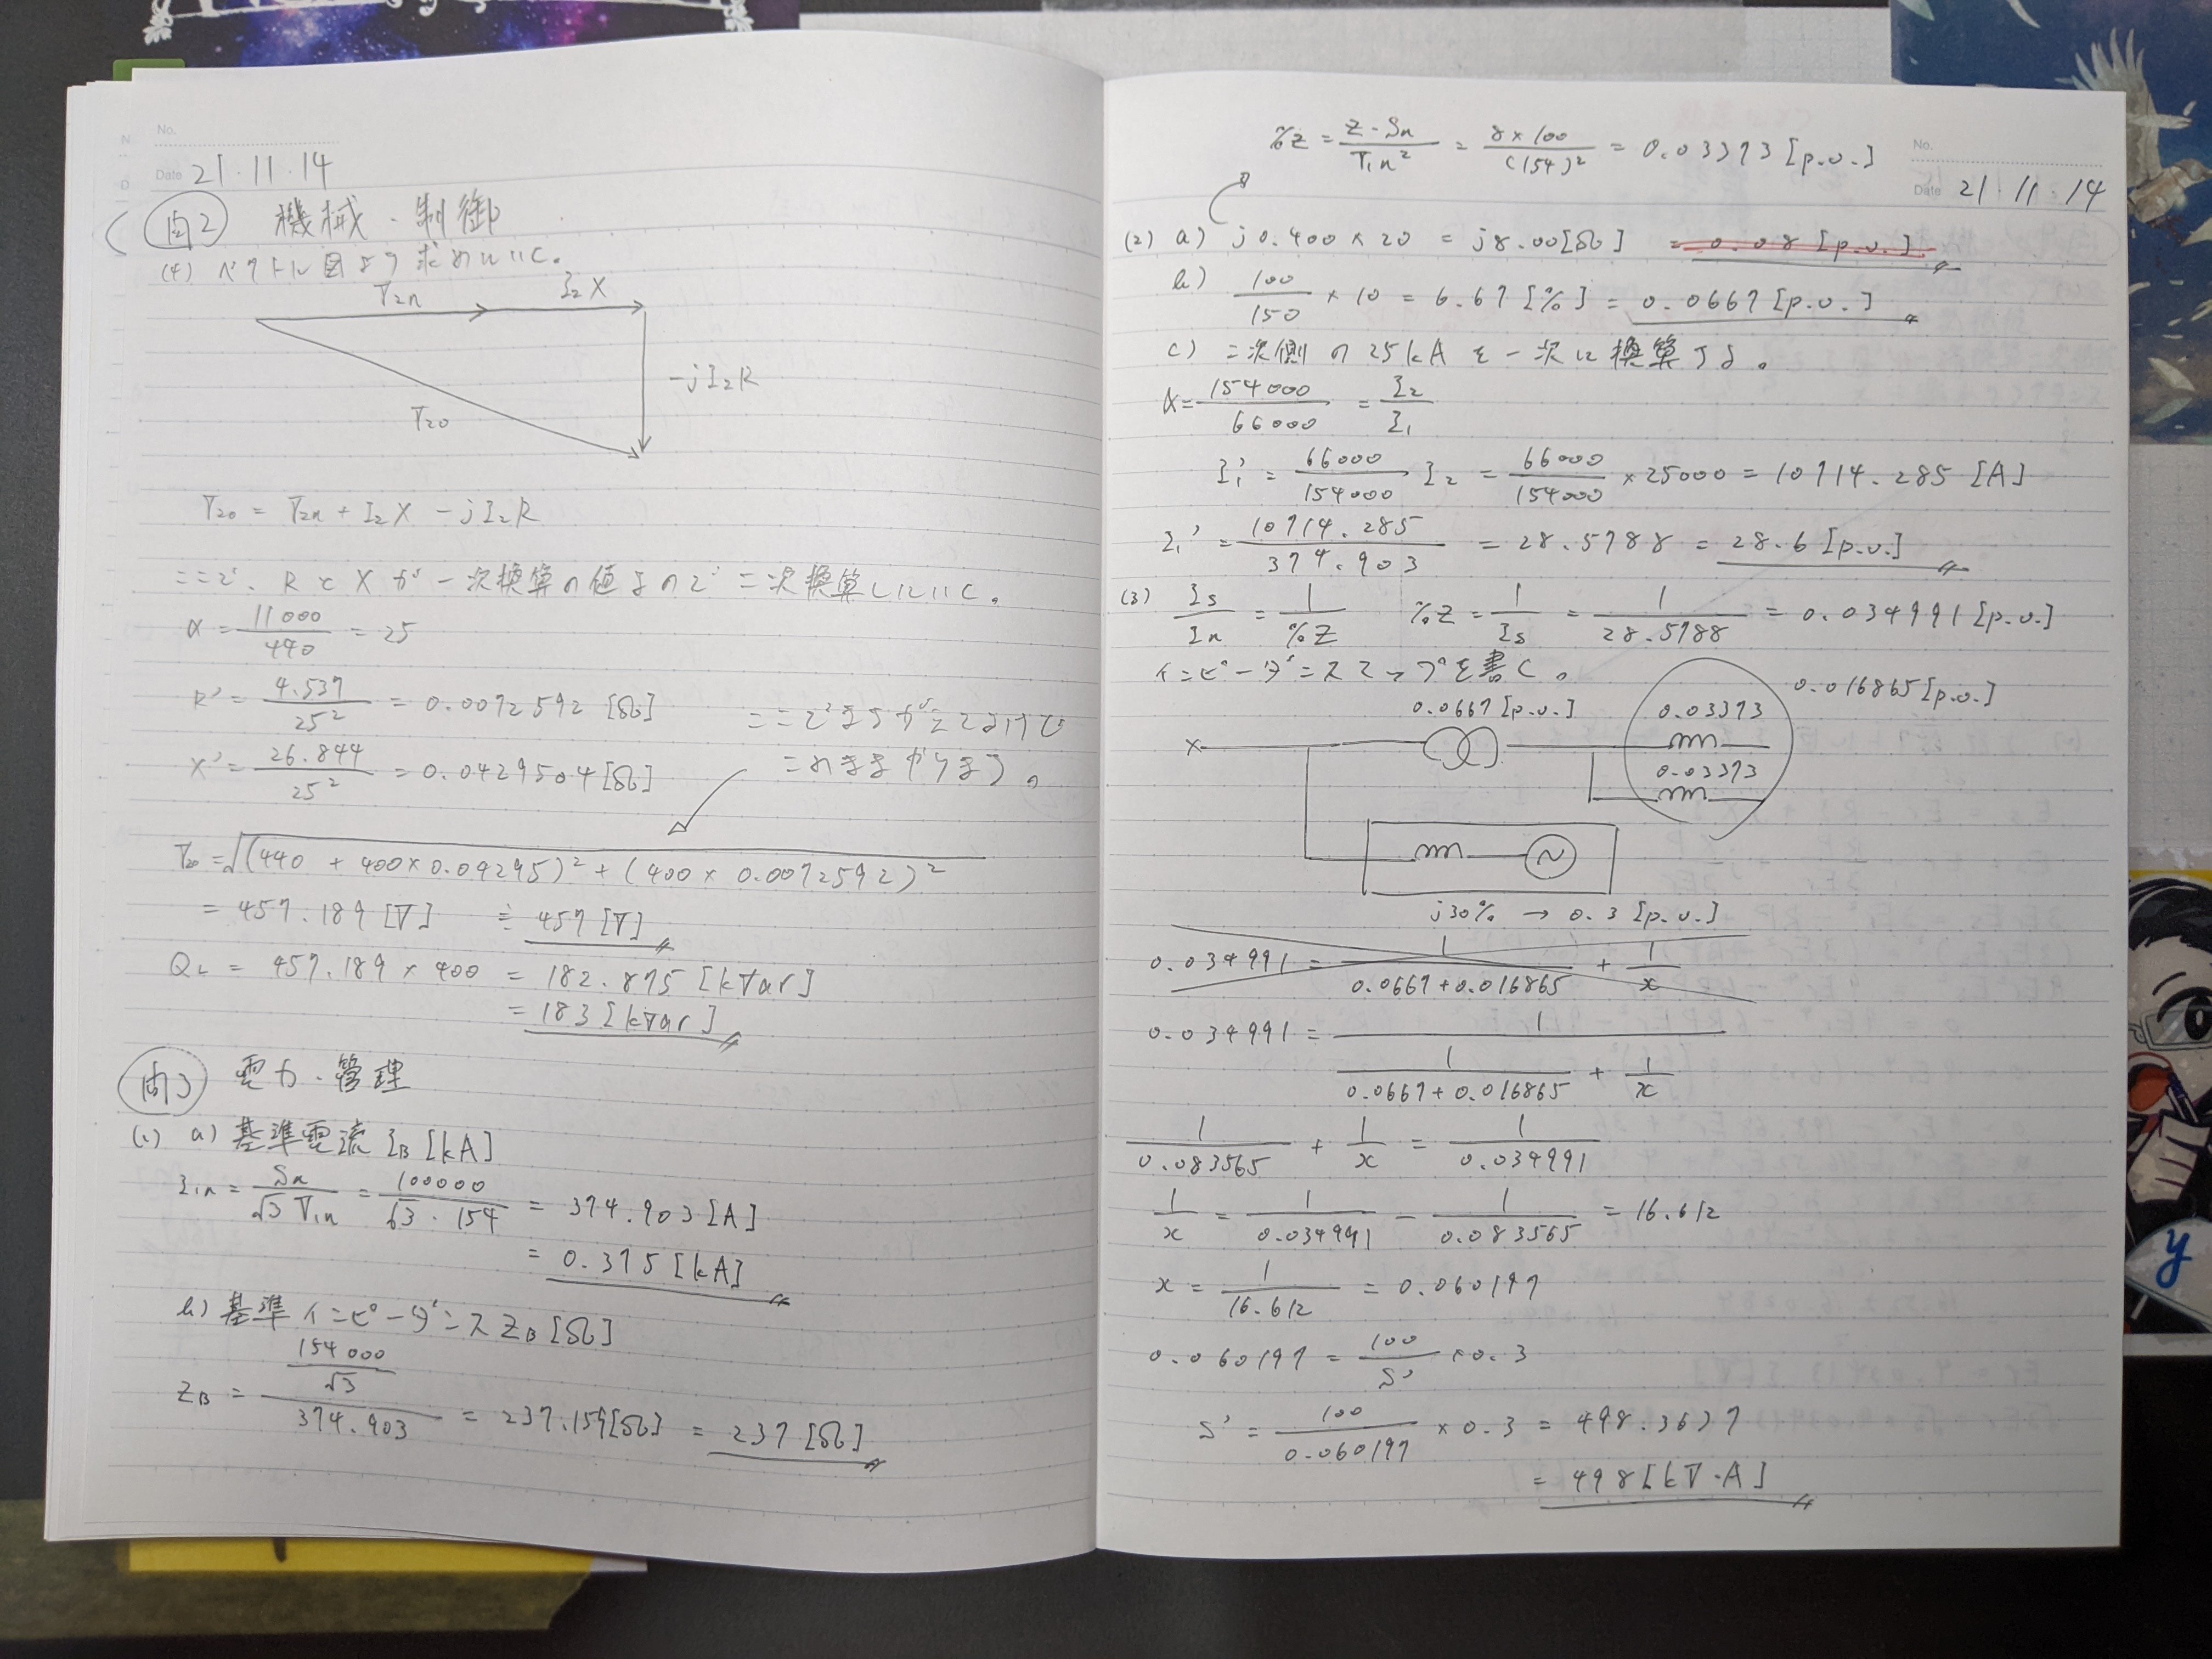 No.
Date 21・11・14
問2 機械・制御
(4) ベクトル図より求めていく。
V₂ₙ I₂X
-jI₂R
V₂₀
V₂₀ = V₂ₙ + I₂X - jI₂R
ここで、RとXが一次換算の値なので二次換算していく。
α = 11000/440 = 25
R' = 4.537/25² = 0.0072592 [Ω]
X' = 26.844/25² = 0.0429504 [Ω]
V₂₀ = √(440 + 400×0.04295)² + (400×0.0072592)²
= 457.189 [V] ≒ 457 [V]
Q_L = 457.189 × 400 = 182.875 [kVar]
= 183 [kVar]
問3 電力・管理
(1) a) 基準電流 I_B [kA]
I₁ₙ = Sₙ/√3 V₁ₙ = 100000/√3・154 = 374.903 [A]
= 0.375 [kA]
b) 基準インピーダンス Z_B [Ω]
Z_B = (154000/√3)/374.903 = 237.159 [Ω] = 237 [Ω]
%Z = Z・Sₙ/V₁ₙ² = 8×100/(154)² = 0.03373 [p.u.]
No.
Date 21・11・14
(2) a) j0.400×20 = j8.00[Ω] = 0.08 [p.u.]
b) 100/150 × 10 = 6.67 [%] = 0.0667 [p.u.]
c) 二次側の25kAを一次に換算する。
α = 154000/66000 = I₂/I₁
I₁' = 66000/154000 I₂ = 66000/154000 × 25000 = 10714.285 [A]
I₁' = 10714.285/374.903 = 28.5788 = 28.6 [p.u.]
(3) Is/In = 1/%Z %Z = 1/Is = 1/28.5788 = 0.034991 [p.u.]
インピーダンスマップを書く。
0.016865 [p.u.]
0.0667 [p.u.] 0.03373
x
0.03373
j30% → 0.3 [p.u.]
0.034991 = 1/(0.0667+0.016865) + 1/x
0.034991 = 1/(1/(0.0667+0.016865) + 1/x)
1/0.083565 + 1/x = 1/0.034991
1/x = 1/0.034991 - 1/0.083565 = 16.612
x = 1/16.612 = 0.060197
0.060197 = 100/S' × 0.3
S' = 100/0.060197 × 0.3 = 498.3637
= 498 [kV・A]
y